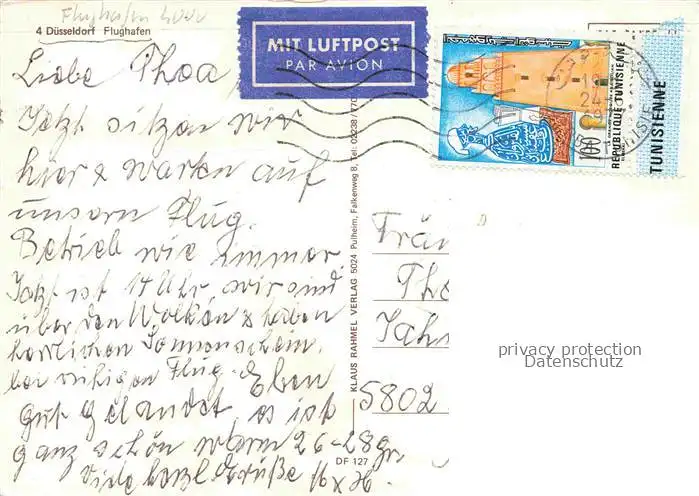 Flughafen
4 Düsseldorf Flughafen
MIT LUFTPOST
PAR AVION
Liebe Thea
Jetzt sitzen wir
hier & warten auf
unsern Flug.
Betrieb wie immer.
Jetzt ist 14 Uhr, wir sind
über den Wolken & haben
herrlichen Sonnenschein,
bei ruhigen Flug. Eben
gut gelandet, es ist
ganz schön warm 26-28 gr.
Viele herzl. Grüße
KLAUS RAHMEL VERLAG 5024 Pulheim, Falkenweg 8, Tel: 02238/770
DF 127
REPUBLIQUE TUNISIENNE
100
TUNISIENNE
Fräu
The
Jahn
5802
privacy protection
Datenschutz